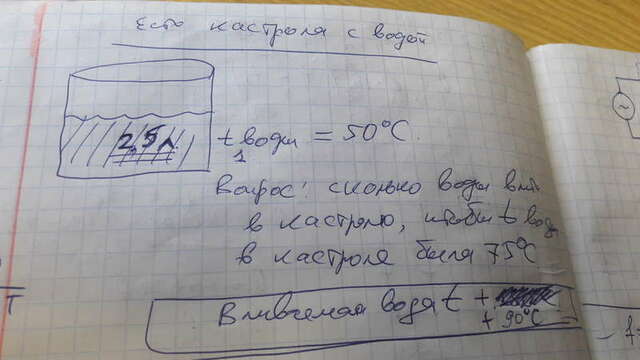 Есть кастроля с водой
2,5 л.
t₁ воды = 50°C.
Вопрос: сколько воды влить
в кастролю, чтобы t вод
в кастроле была 75°C
Вливаемая вода t +
+ 90°C
T